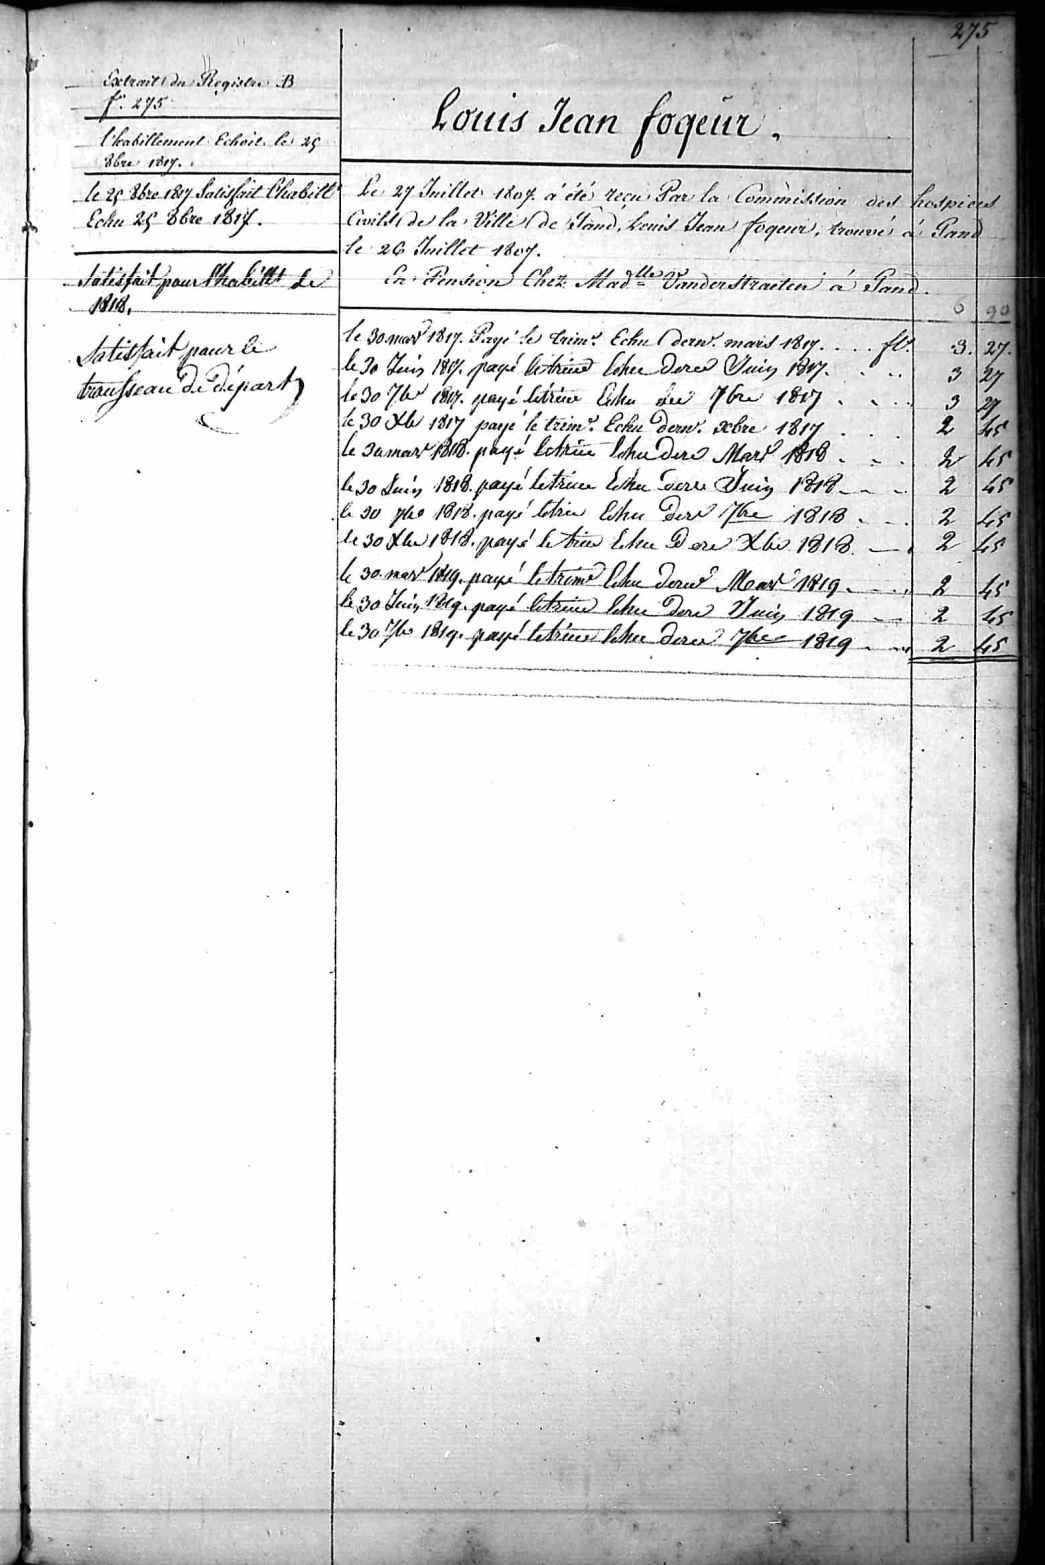 275
Extrait du Registre B
f° 275
l'habillement Echoit le 25
8bre 1817.
le 25 8bre 1817 Satisfait l'habillt
Echu 25 8bre 1817.
Satisfait pour l'habillt de
1818.
Satisfait pour le
trousseau de départ
Louis Jean fogeur.
Le 27 Juillet 1807. a été reçu Par la Commission des hospices
Civils de la Ville de Gand, Louis Jean fogeur, trouvé à Gand
le 26 Juillet 1807.
En Pension Chez Madlle Vanderstraeten à Gand.
6 90
le 30 mars 1817. Payé le trimr. Echu dernr. mars 1817. . . . fls. 3. 27.
le 30 Juin 1817. payé le trime Echu dere Juin 1817. . . . 3 27
le 30 7bre 1817. payé le trime Echu dere 7bre 1817 . . . 3 27
le 30 Xbre 1817 payé le trimr. Echu dernr. xbre 1817 . . . 2 45
le 30 mars 1818. payé le trime Echu dere Mars 1818 . . . 2 45
le 30 Juin 1818. payé le trime Echu dere Juin 1818 . . . 2 45
le 30 7bre 1818. payé le trime Echu dere 7bre 1818 . . . 2 45
le 30 Xbre 1818. payé le trime Echu Dere Xbre 1818 . . . 2 45
le 30 mars 1819. payé le trime Echu dernr Mars 1819 . . . 2 45
le 30 Juin 1819. payé le trime Echu dere Juin 1819 . . . 2 45
le 30 7bre 1819. payé le trime Echu dere 7bre 1819 . . . 2 45